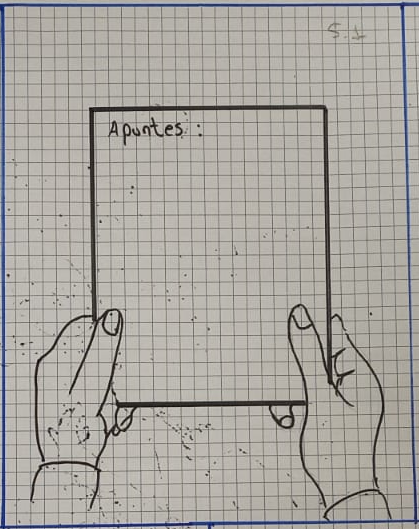 5.1
Apuntes :